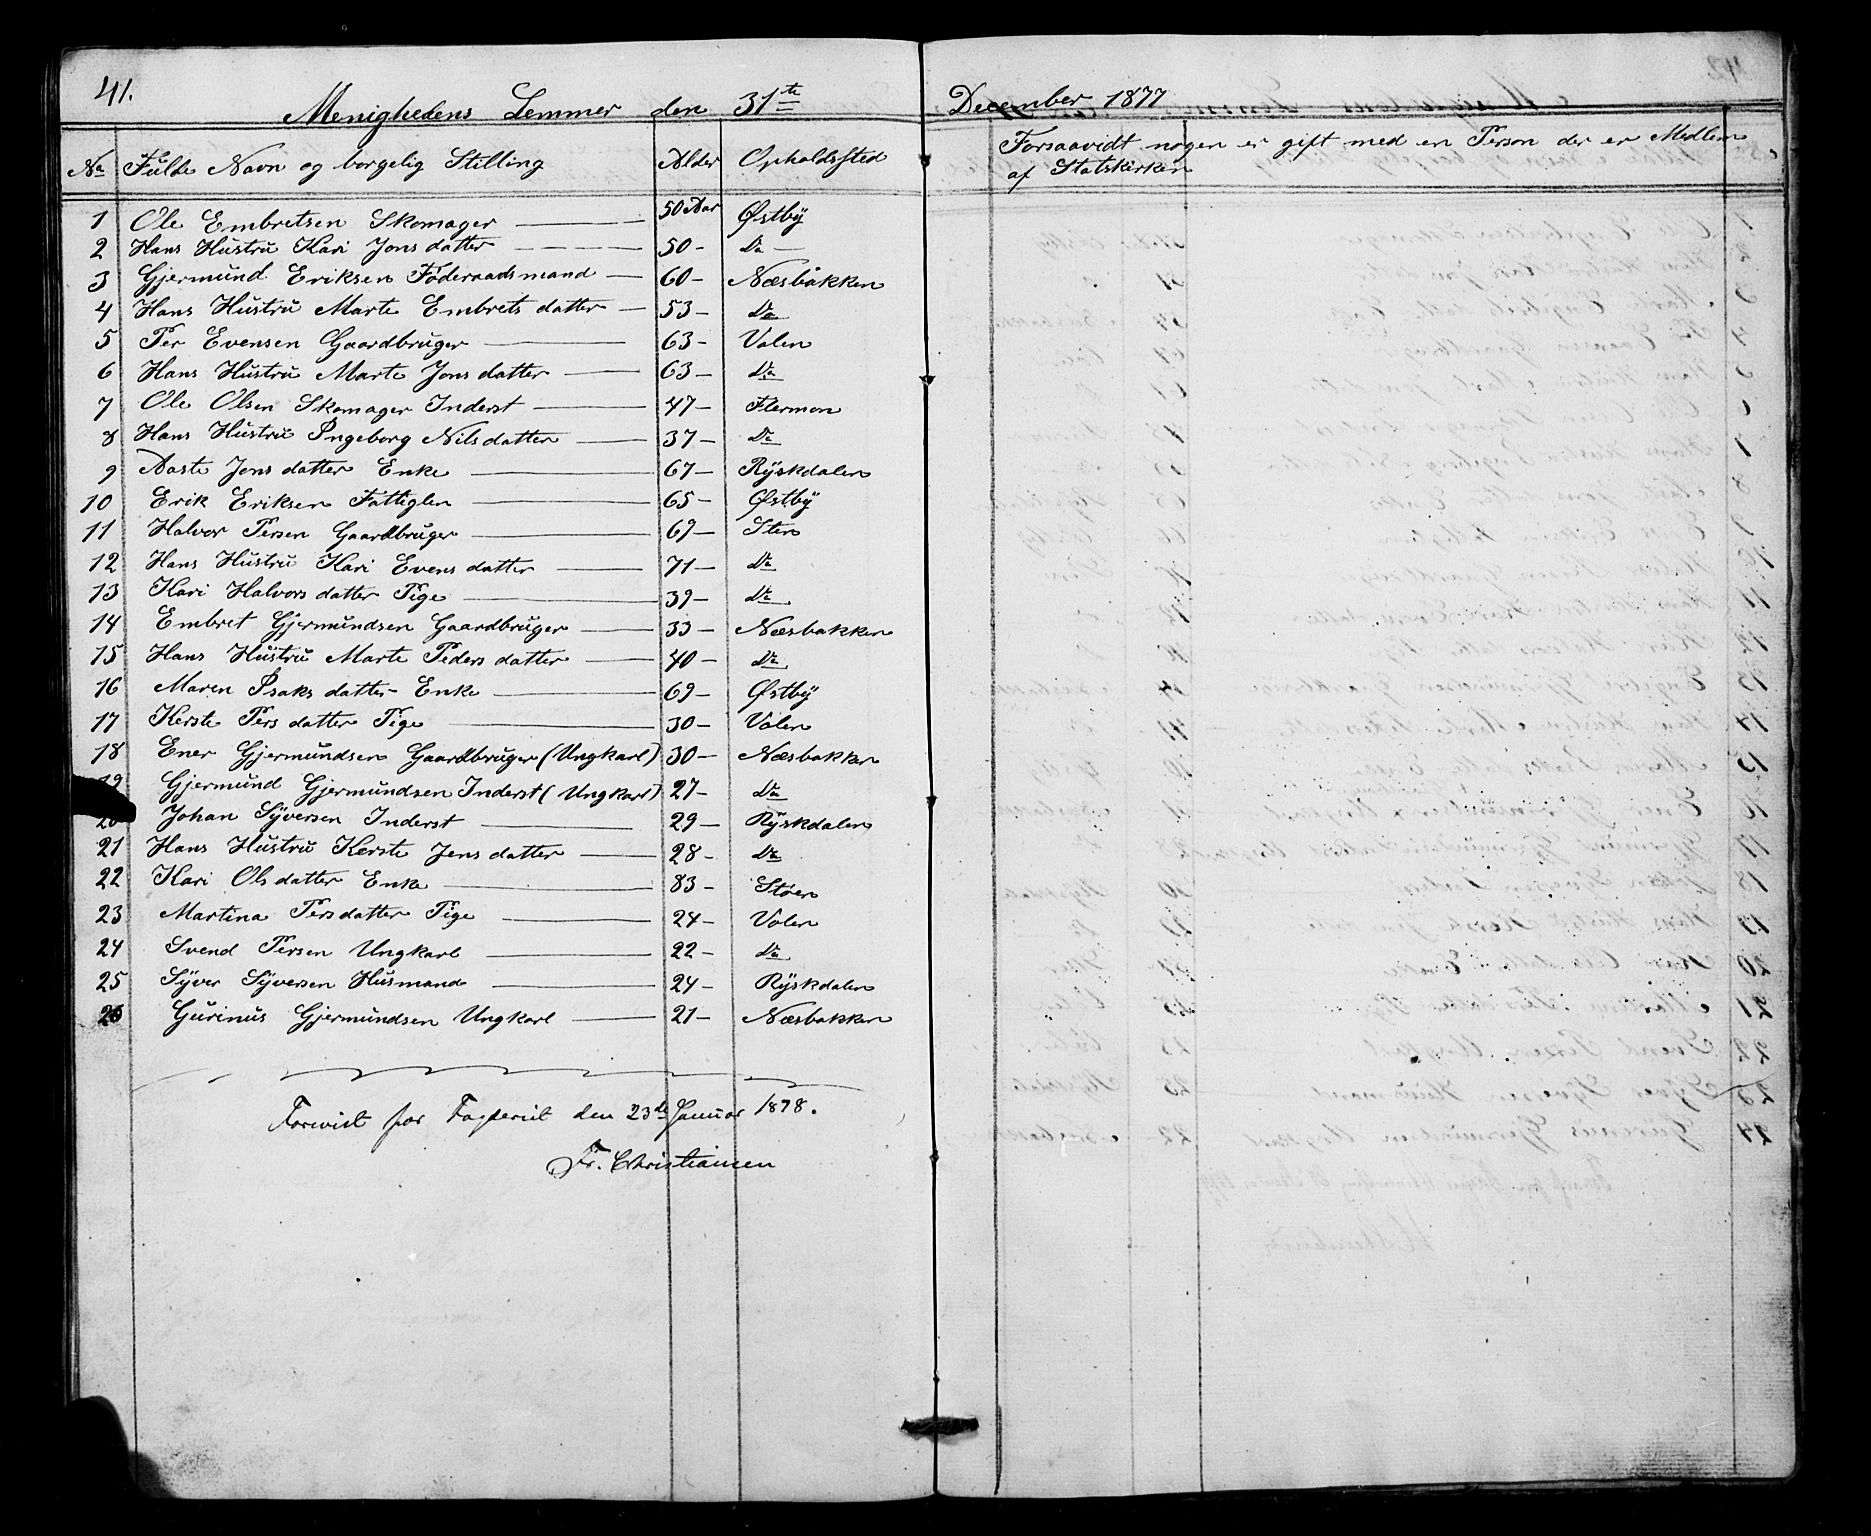 41.
Menighedens Lemmer den 31te December 1877
No Fulde Navn og borgelig Stilling Alder Opholdssted Forsaavidt nogen er gift med en Person der er Medlem
af Statskirken
1 Ole Embretsen Skomager 50 Aar Østbÿ
2 Hans Hustru Kari Jonsdatter 50 - Do
3 Gjermund Eriksen Føderaadsmand 60 - Næsbakken
4 Hans Hustru Marte Embretsdatter 53 - Do
5 Per Evensen Gaardbruger 63 - Valen
6 Hans Hustru Marte Jonsdatter 63 - Do
7 Ole Olsen Skomager Inderst 47 - Flermon
8 Hans Hustru Ingeborg Nilsdatter 37 - Do
9 Aaste Jonsdatter Enke 67 - Rÿskdalen
10 Erik Eriksen Fattiglem 65 - Østbÿ
11 Halvor Persen Gaardbruger 69 - Sten
12 Hans Hustru Kari Evensdatter 71 - Do
13 Kari Halvorsdatter Pige 39 - Do
14 Embret Gjermundsen Gaardbruger 33 - Næsbakken
15 Hans Hustru Marte Pedersdatter 40 - Do
16 Maren Isaksdatter Enke 69 - Østbÿ
17 Kerste Persdatter Pige 30 - Valen
18 Ener Gjermundsen Gaardbruger (Ungkarl) 30 - Næsbakken
19 Gjermund Gjermundsen Inderst (Ungkarl) 27 - Do
20 Johan Sÿversen Inderst 29 - Rÿskdalen
21 Hans Hustru Kerste Jensdatter 28 - Do
22 Kari Olsdatter Enke 83 - Støen
23 Martina Persdatter Pige 24 - Valen
24 Svend Persen Ungkarl 22 - Do
25 Sÿver Sÿversen Husmand 24 - Rÿskdalen
26 Gurinus Gjermundsen Ungkarl 21 - Næsbakken
Forevist for Fogderiet den 23de Januar 1878.
Fr. Christiansen